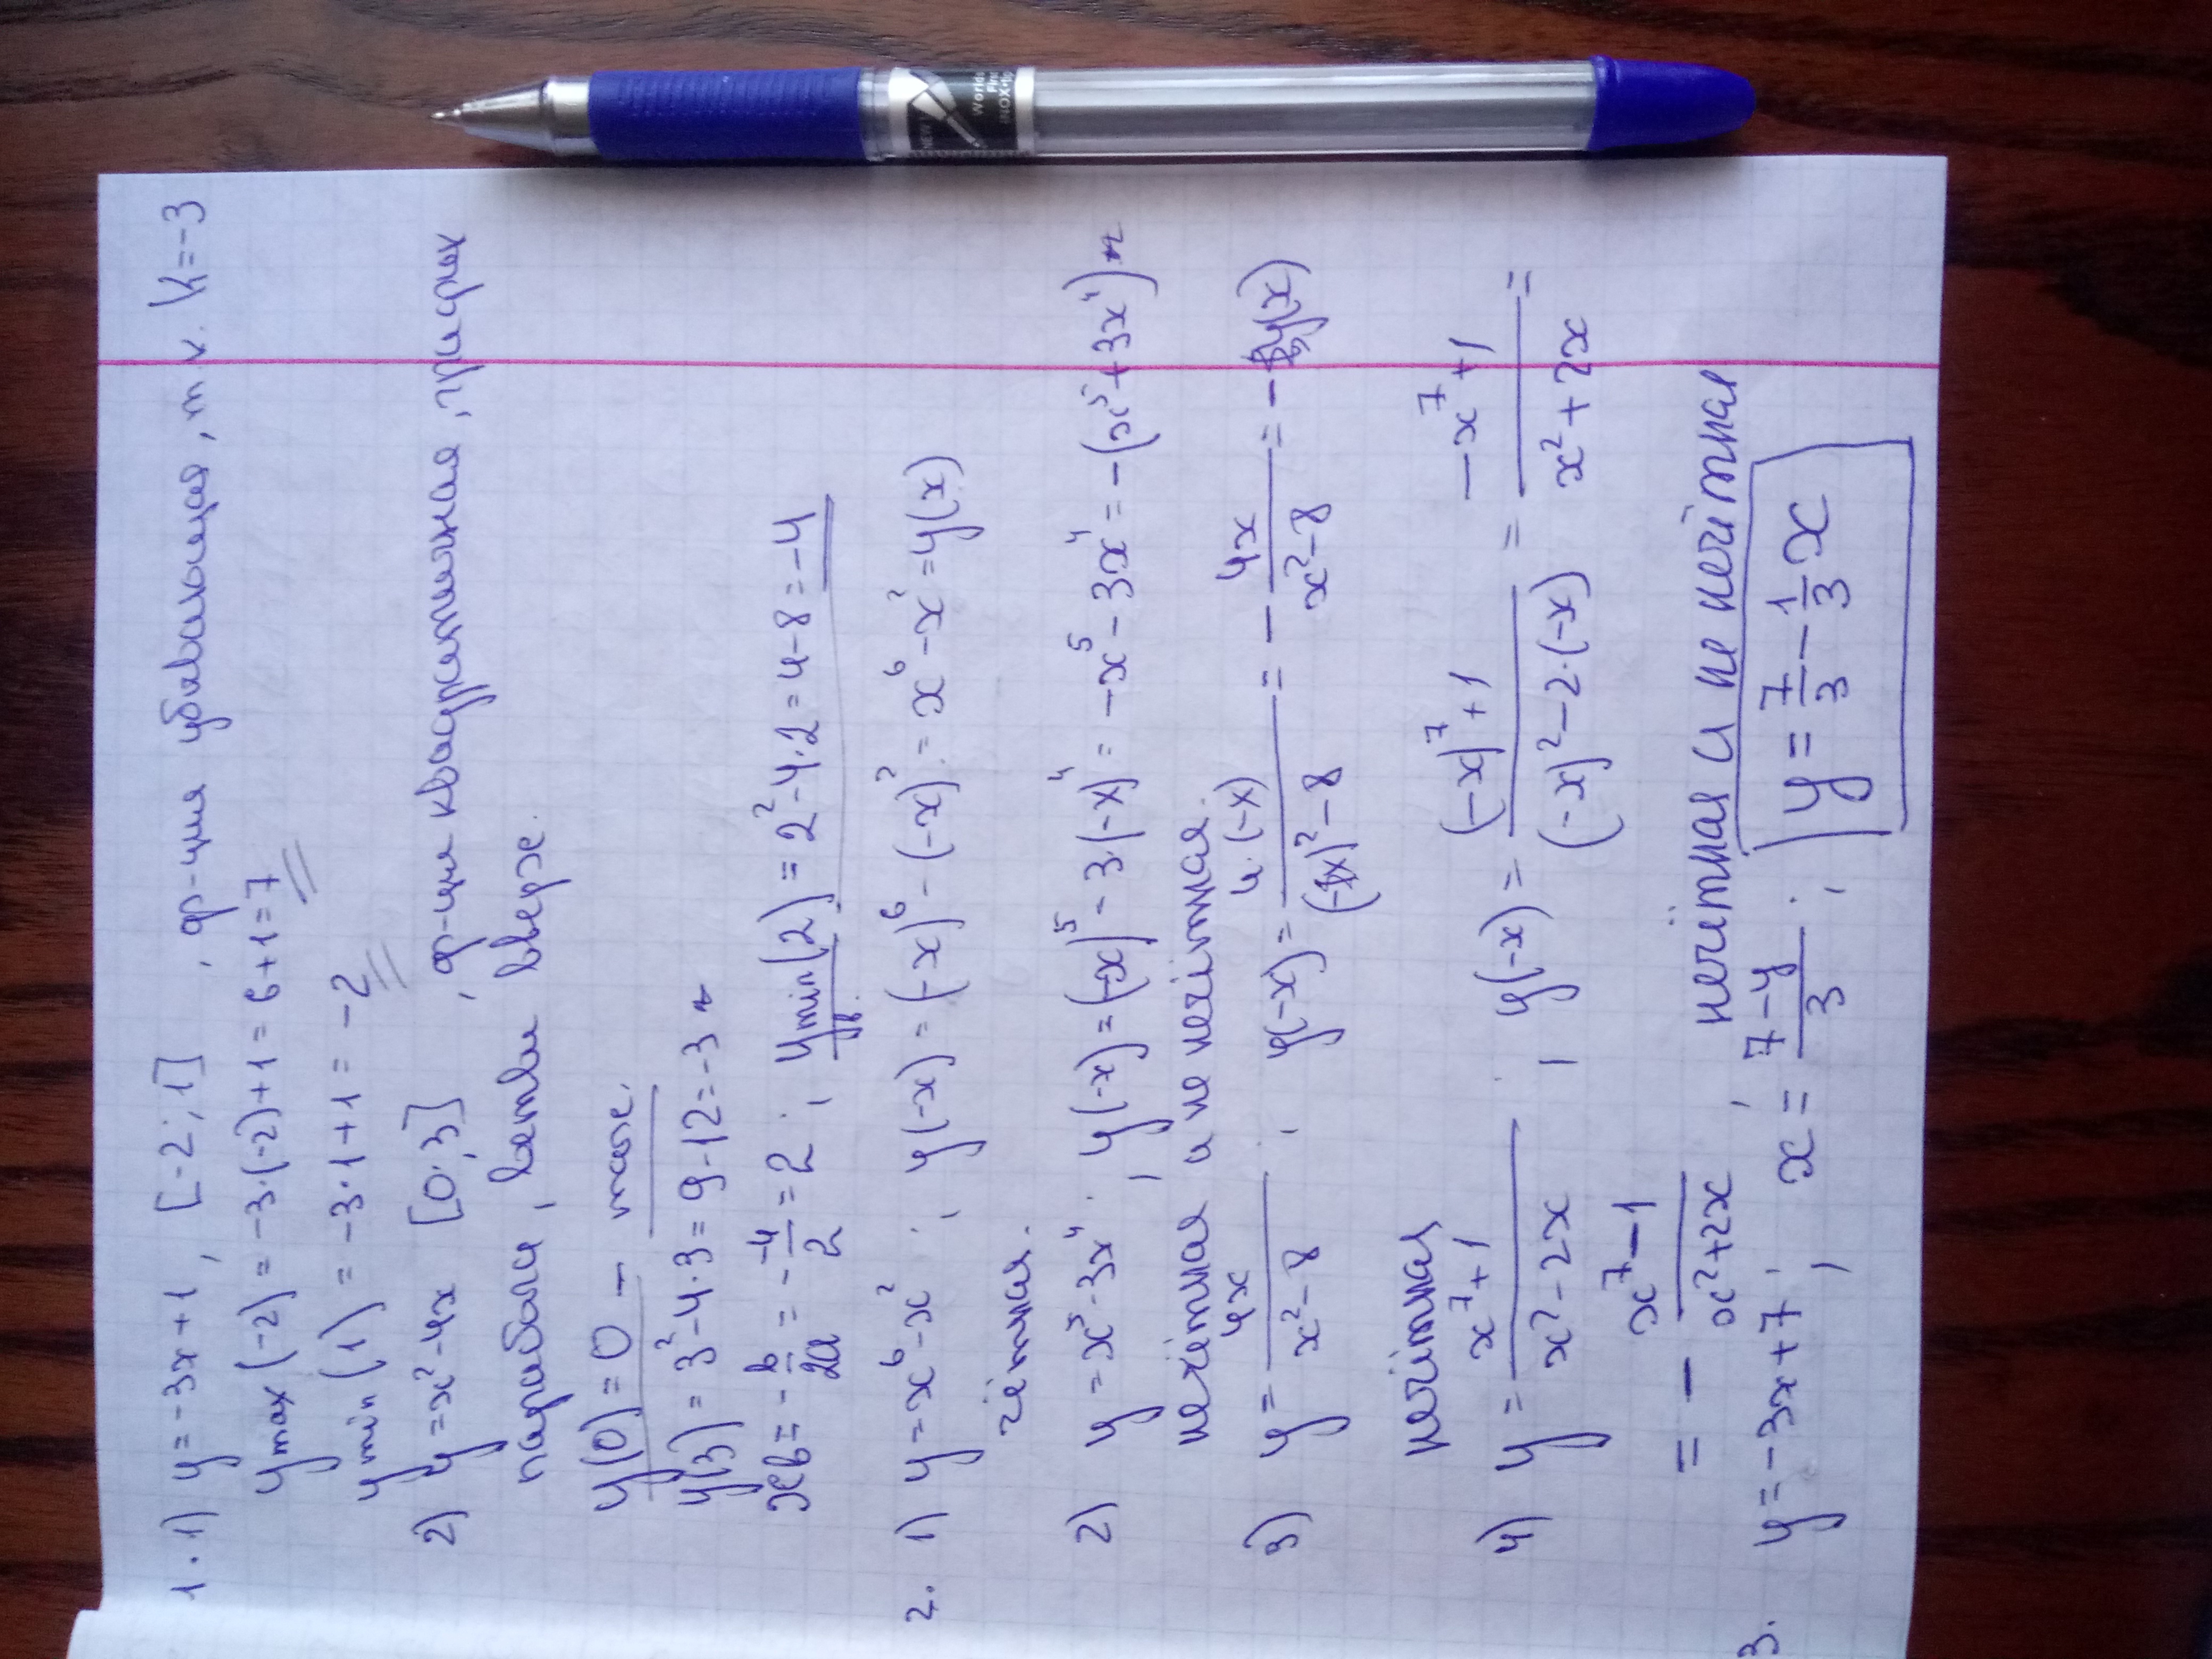 1. 1) y = -3x + 1, [-2; 1], ф-ция убывающая, т.к. k = -3
ymax (-2) = -3·(-2) + 1 = 6 + 1 = 7
ymin (1) = -3·1 + 1 = -2
2) y = x² - 4x [0; 3], ф-ция квадратичная, график
парабола, ветви вверх.
y(0) = 0 - макс.
y(3) = 3² - 4·3 = 9 - 12 = -3
xв = -b/2a = -(-4)/2 = 2; ymin(2) = 2² - 4·2 = 4 - 8 = -4
2. 1) y = x⁶ - x²; y(-x) = (-x)⁶ - (-x)² = x⁶ - x² = y(x)
чётная.
2) y = x⁵ - 3x⁴; y(-x) = (-x)⁵ - 3·(-x)⁴ = -x⁵ - 3x⁴ = -(x⁵ + 3x⁴)
нечётная и не нечётная.
3) y = 4x/(x² - 8); y(-x) = 4·(-x)/((-x)² - 8) = - 4x/(x² - 8) = -y(x)
нечётная
4) y = (x⁷ + 1)/(x² - 2x); y(-x) = ((-x)⁷ + 1)/((-x)² - 2·(-x)) = (-x⁷ + 1)/(x² + 2x) =
= - (x⁷ - 1)/(x² + 2x), нечётная и не нечётная
3. y = -3x + 7; x = (7 - y)/3; y = 7/3 - 1/3 x
NEW!
World's
First